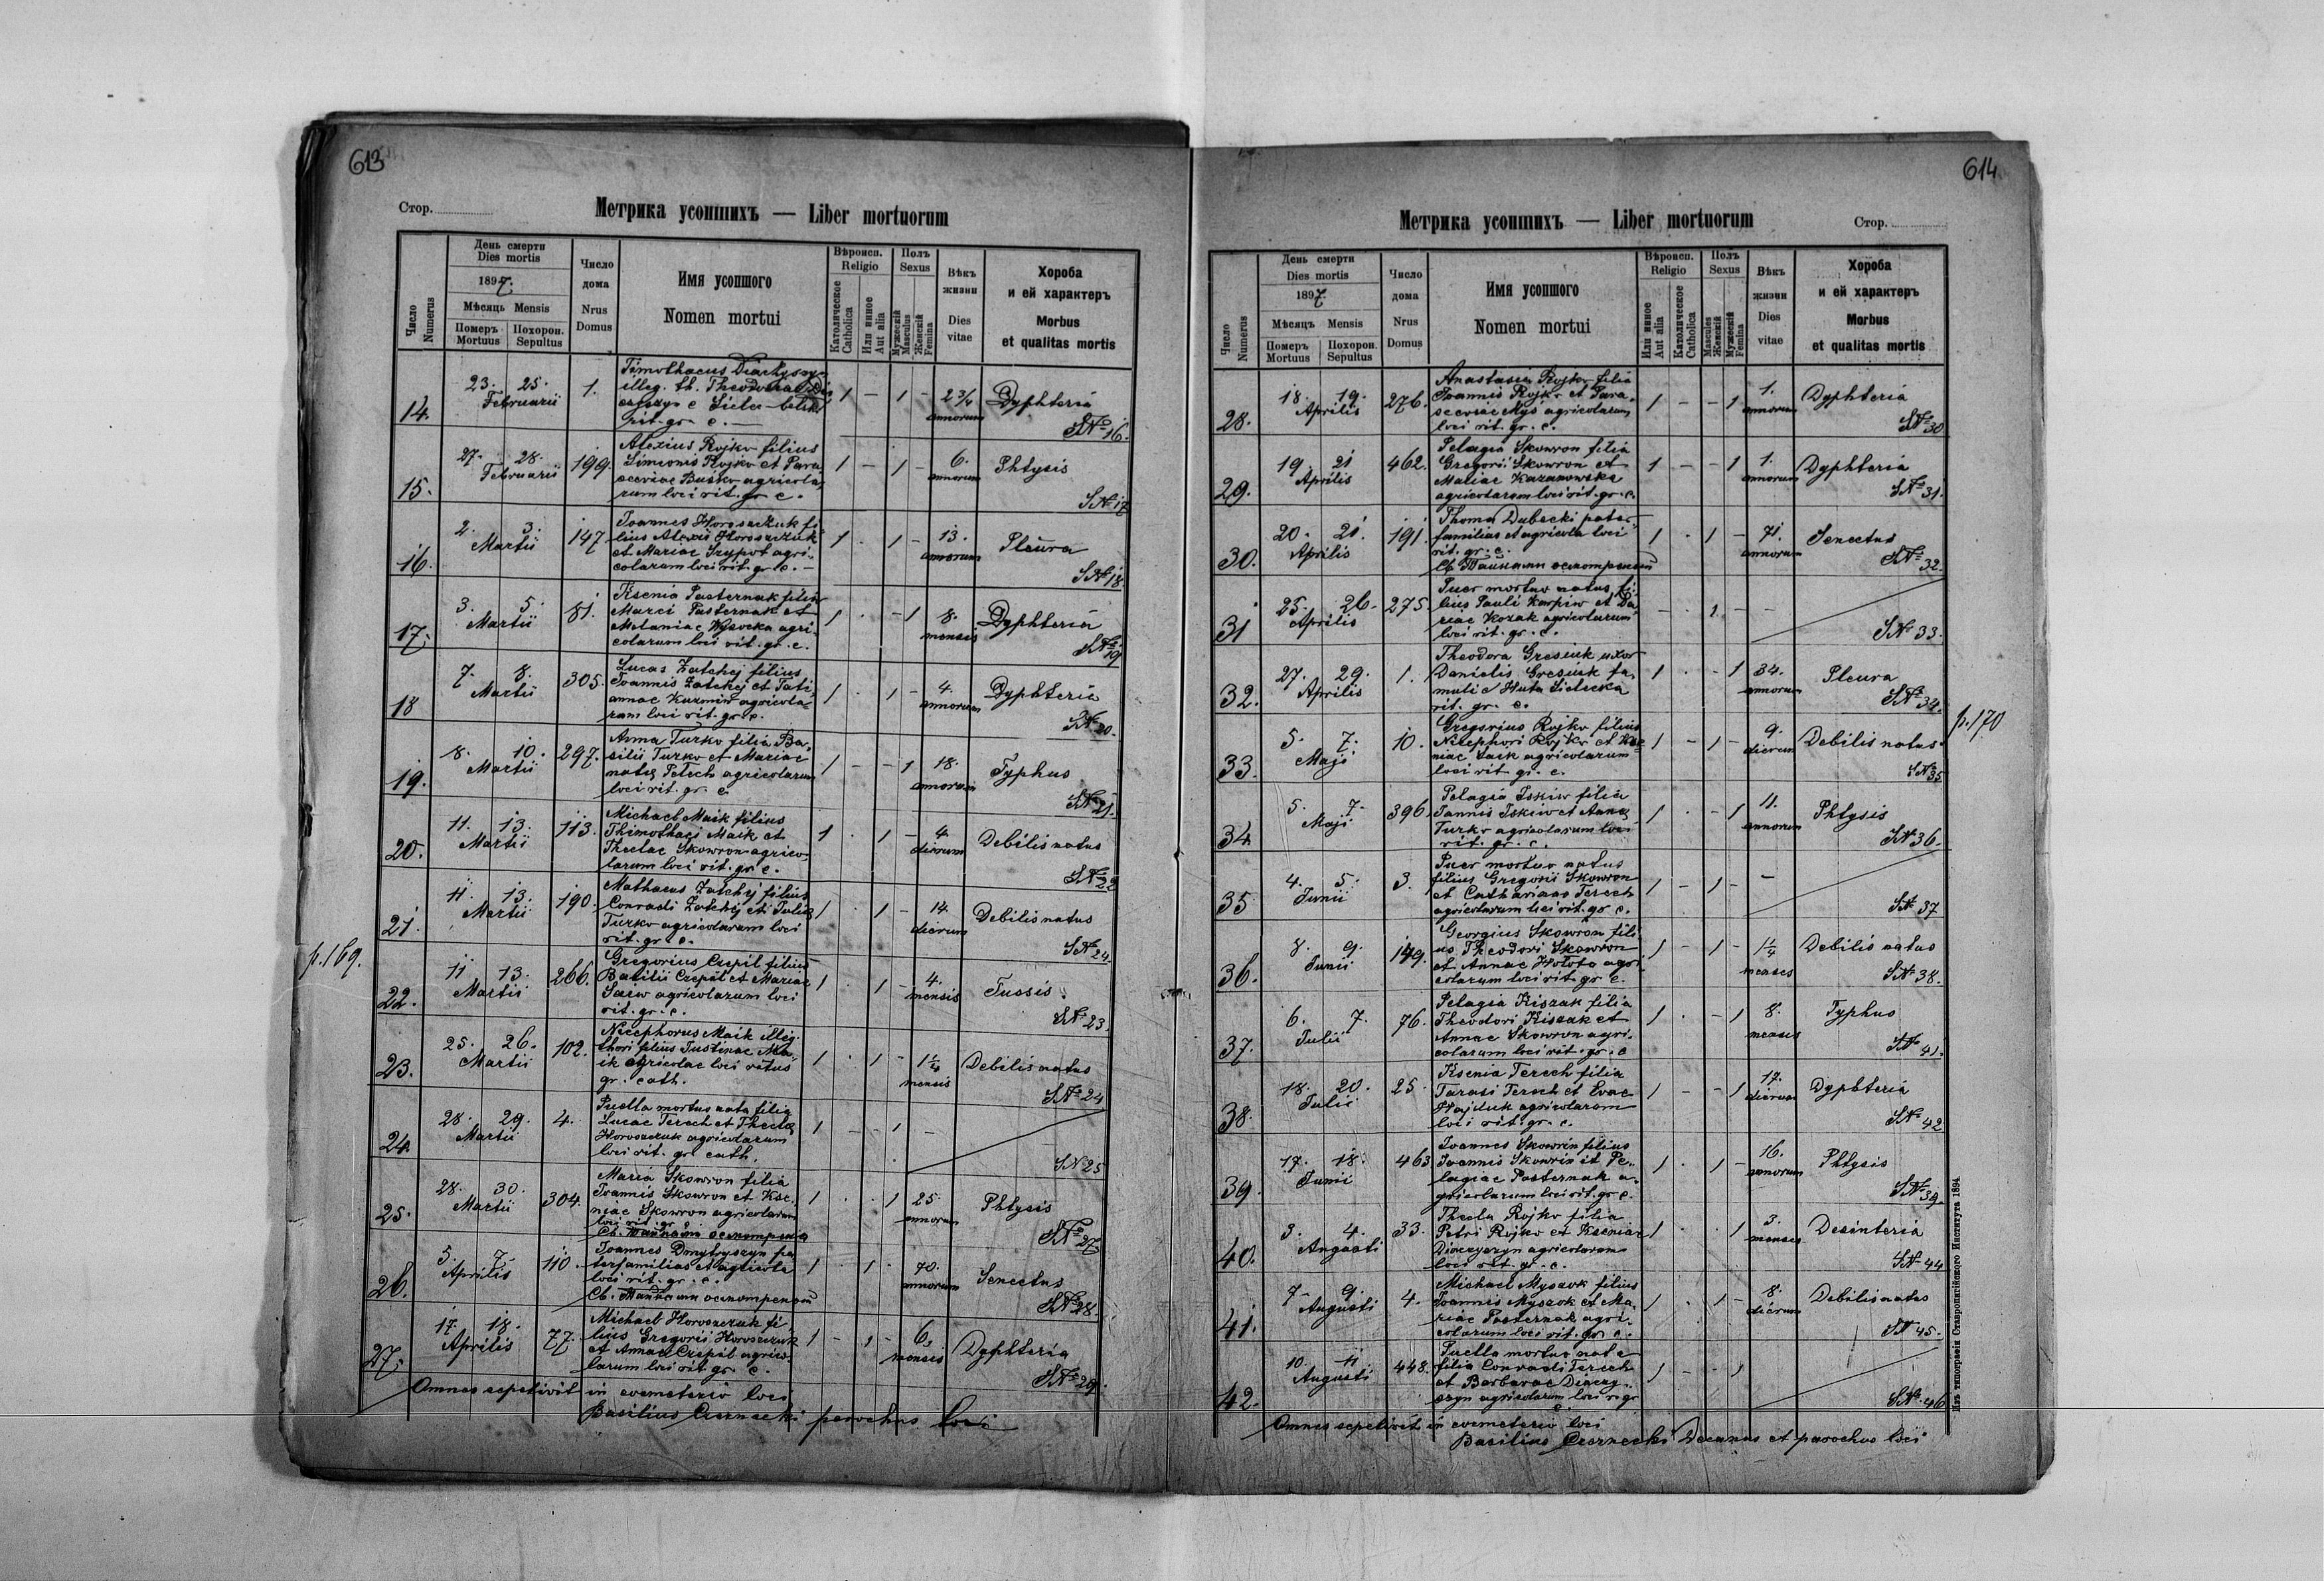 613
Стор.
Метрика усопшихъ — Liber mortuorum
Число
Numerus
День смерти
Dies mortis
1897.
Мѣсяць Mensis
Померъ Mortuus
Похорон. Sepultus
Число
дома
Nrus
Domus
Имя усопшого
Nomen mortui
Вѣроисп.
Religio
Католическое
Catholica
Или иное
Aut alia
Полъ
Sexus
Мужескій
Masculus
Женскій
Femina
Вѣкъ
жизни
Dies
vitae
Хороба
и ей характеръ
Morbus
et qualitas mortis
14. 23. 25. Februarii 1. 1 - 1 - 2 3/4 annorum Dyphteria
Timothaeus Diaczyszyn
illeg. th. Theodorae
pit. gr. c.
S№ 16.
15. 27. 28. Februarii 199. 1 - 1 - 6. annorum Phtysis
Alexius Rojko filius
Simionis Rojko et Para
sceviae Busko agricola
rum loci rit. gr. c.
S№ 17
16. 2. 3. Martii 147 1 . 1 - 13. annorum Pleura
Joannes Horoszczuk fi
lius Alexii Horoszczuk
et Mariae Szypot agri-
colarum loci rit. gr. c. -
S№ 18.
17. 3. 5. Martii 81. 1 - 1 8. mensis Dyphteria
Ksenia Pasternak filia
Marci Pasternak et
Melaniae Wysocka agri-
colarum loci rit. gr. c.
S№ 19
18 7. 8. Martii 305. 1 . 1 - 4. annorum Dyphteria
Lucas Zatchej filius
Joannis Zatchej et Tati
annae Kuzmin agricola-
rum loci rit. gr. c.
S№ 20.
19. 8. 10. Martii 297. 1 - - 1 18. annorum Typhus
Anna Turko filia Ba-
silii Turko et Mariae
natę Petech agricolarum
loci rit. gr. c
S№ 21.
20. 11. 13. Martii 113. 1 . 1 - 4. dierum Debilis natus
Michael Maik filius
Thimothaei Maik et
Theclae Skowron agrico-
larum loci rit. gr. c.
S№ 22
21. 11. 13. Martii 190. 1 . 1 - 14. dierum Debilis natus
Mathaeus Zatchej filius
Conradi Zatchej et Julię
Turko agricolarum loci
rit. gr. c.
S№ 24
p. 169.
22. 11 13. Martii 266. 1 . 1 - 4. mensis Tussis
Gregorius Czepil filius
Basilii Czepil et Mariae
Saiw agricolarum loci
rit. gr. c.
S№ 23.
23. 25. 26. Martii 102. 1 . 1 - 1 1/4 mensis Debilis natus
Nicephorus Maik illeg.
thori filius Justinae Ma-
ik agricolae loci ritus
gr. cath.
S№ 24
24. 28. 29. Martii 4. 1 - - 1 -
Puella mortuo nata filia
Lucae Terech et Theclę
Horoszczuk agricolarum
loci rit. gr. cath.
S№ 25
25. 28. 30. Martii 304. 1 . . 1 25. annorum Phtysis
Maria Skowron filia
Joannis Skowron et Kse-
niae Skowron agricolarum
loci rit. gr.
S№ 27
26. 5. 7. Aprilis 110. 1 . 1 . 70. annorum Senectus
Joannes Dmytryszyn pa
terfamilias et agricola
loci rit. gr. c.
S№ 28.
27. 17. 18. Aprilis 77. 1 - 1 - 6. mensis Dyphteria
Michael Horoszczuk fi
lius Gregorii Horoszczuk
et Annae Czepil agrico-
larum loci rit. gr. c.
S№ 29.
Omnes sepelivit in coemeterio loci
Basilius Czernecki parochus loci
614
Метрика усопшихъ — Liber mortuorum
Стор.
Число
Numerus
День смерти
Dies mortis
1897.
Мѣсяць Mensis
Померъ Mortuus
Похорон. Sepultus
Число
дома
Nrus
Domus
Имя усопшого
Nomen mortui
Вѣроисп.
Religio
Или иное
Aut alia
Католическое
Catholica
Полъ
Sexus
Masculus
Женскій
Мужескій
Femina
Вѣкъ
жизни
Dies
vitae
Хороба
и ей характеръ
Morbus
et qualitas mortis
28. 18. 19. Aprilis 276. 1 - - 1 1. annorum Dyphteria
Anastasia Rojko filia
Joannis Rojko et Para-
sceviae Mys agricolarum
loci rit. gr. c.
S№ 30
29. 19 21 Aprilis 462. 1 - - 1 1. annorum Dyphteria
Pelagia Skowron filia
Gregorii Skowron et
Maliae Kazanowska
agricolarum loci rit. gr. c.
S№ 31.
30. 20. 21. Aprilis 191. 1 . 1 - 71. annorum Senectus
Thoma Dubecki pater-
familias et agricola loci
rit. gr. c.
S№ 32.
31 25. 26. Aprilis 275. - . 1 - -
Puer mortuo natus fi-
lius Pauli Karpiw et Da-
riae Kozak agricolarum
loci rit. gr. c.
S№ 33.
32. 27. 29. Aprilis 1. 1 . - 1 34. annorum Pleura
Theodora Gresiuk uxor
Danielis Gresiuk fa
muli e Huta Sielecka
rit. gr. c.
S№ 34.
p. 170
33. 5. 7. Maji 10. 1 - 1 - 9. dierum Debilis natus
Gregorius Rojko filius
Nicephori Rojko et Kse-
niae Sack agricolarum
loci rit gr. c.
S№ 35
34 5. 7. Maji 396. 1 . - 1 11. annorum Phtysis
Pelagia Iskiw filia
Joannis Iskiw et Annę
Turko agricolarum loci
rit. gr. c.
S№ 36.
35 4. 5. Junii 3. 1 - 1 - -
Puer mortuo natus
filius Gregorii Skowron
et Catharinae Terech
agricolarum loci rit. gr. c.
S№ 37
36. 8. 9. Junii 149. 1 - 1 - 1 1/4 menses Debilis natus
Georgius Skowron fili
us Theodori Skowron
et Annae Hołota agri
colarum loci rit. gr. c.
S№ 38.
37. 6. 7 Julii 76. 1 . - 1 8. menses Typhus
Pelagia Kiszak filia
Theodori Kiszak et
Annae Skowron agri-
colarum loci rit. gr. c
S№ 41.
38. 18. 20. Julii 25. 1 - - 1 17. dierum Dyphteria
Ksenia Terech filia
Tarasi Terech et Evae
Hajduk agricolarum
loci rit. gr. c.
S№ 42
39. 17. 18. Junii 463 1 . 1 - 16. annorum Phtysis
Joannes Skowron filius
Joannis Skowron et Pe-
lagiae Pasternak a-
gricolarum loci rit. gr. c.
S№ 39.
40. 3. 4. Augusti 33. 1 . . 1 3. menses Desinteria
Thecla Rojko filia
Petri Rojko et Kseniae
Diaczyszyn agricolarum
loci rit. gr. c.
S№ 44
41. 7. 9. Augusti 4. 1 . 1 - 8. dierum Debilis natus
Michael Myszok filius
Joannis Myszok et Ma-
riae Pasternak agri-
colarum loci rit. gr. c.
S№ 45.
42. 10. 11 Augusti 448. 1 - - 1
Puella mortuo nata
filia Conradi Terech
et Barbarae Diaczy-
szyn agricolarum loci r. gr
c.
S№ 46
Omnes sepelivit in coemeterio loci
Basilius Czernecki Decanus et parochus loci
Изъ типографіи Ставропигійского Института 1894.